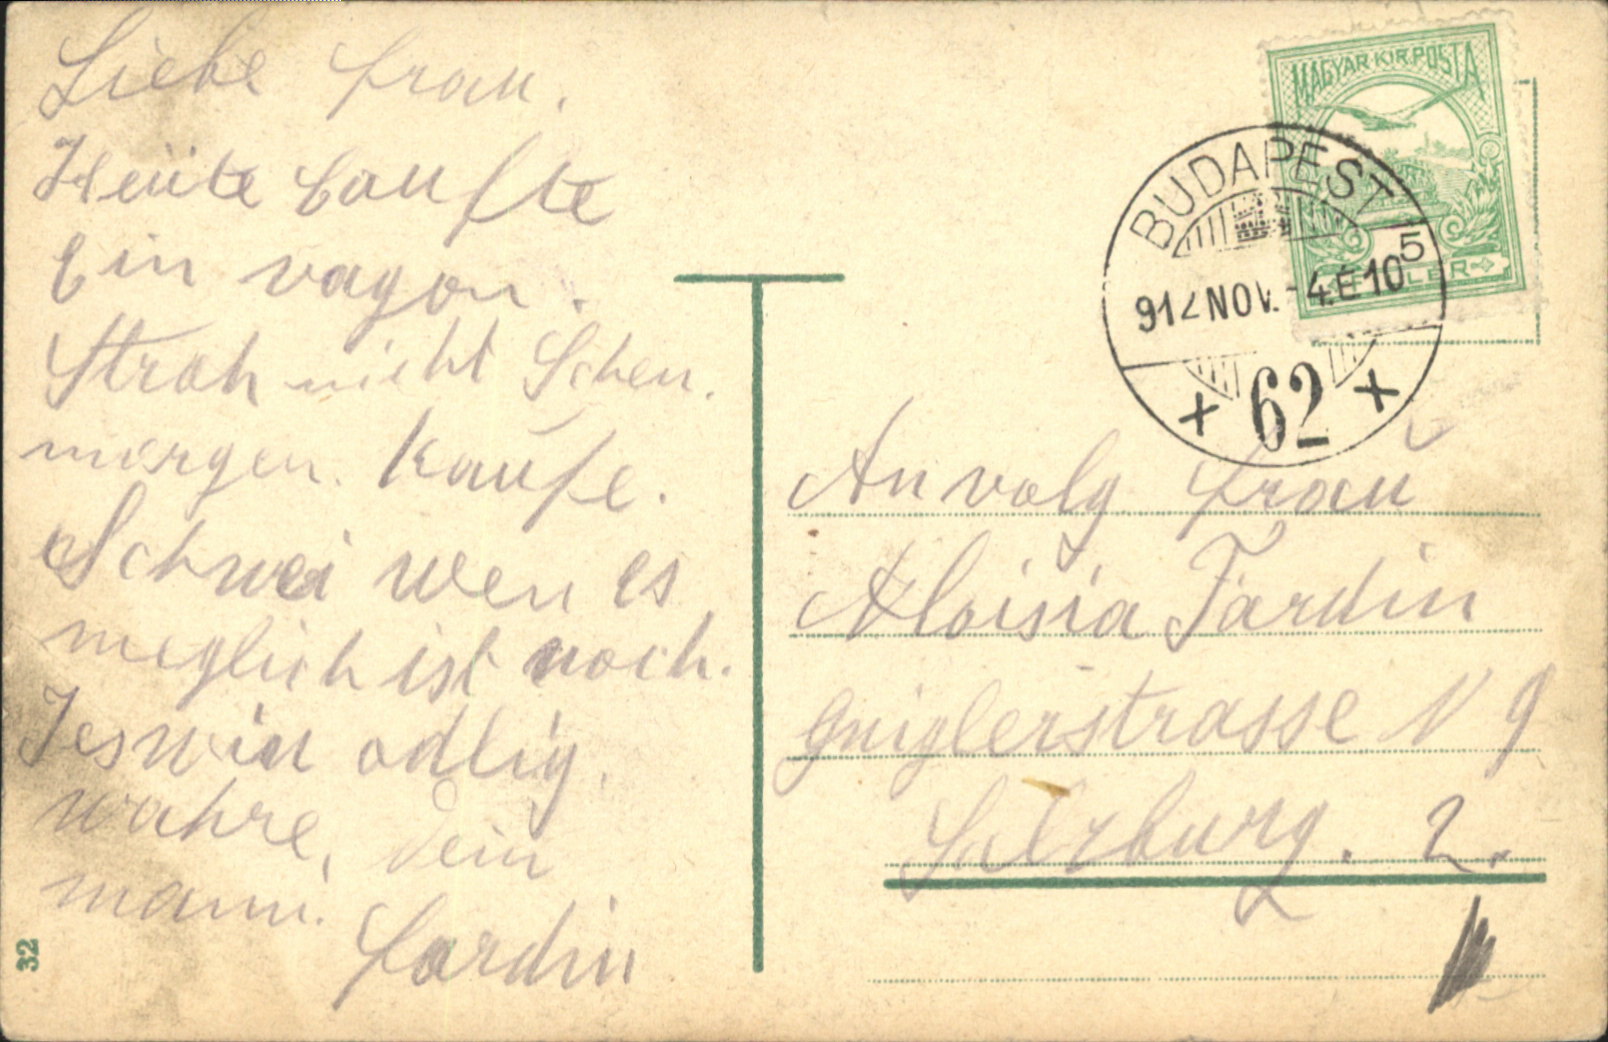 Liebe frau.
Heute kaufte
Ein vagon.
Stroh nicht Schen.
morgen. kaufe.
Schwei wen es
meglich ist noch.
odlig.
wahre, Dein
mann.
Fardin
32
MAGYAR KIR. POSTA
BUDAPEST
912 NOV. -4. É 10
5
62
An volg frau
Aloisia Fardin
Gniglerstrasse N 9
Salzburg. 2.